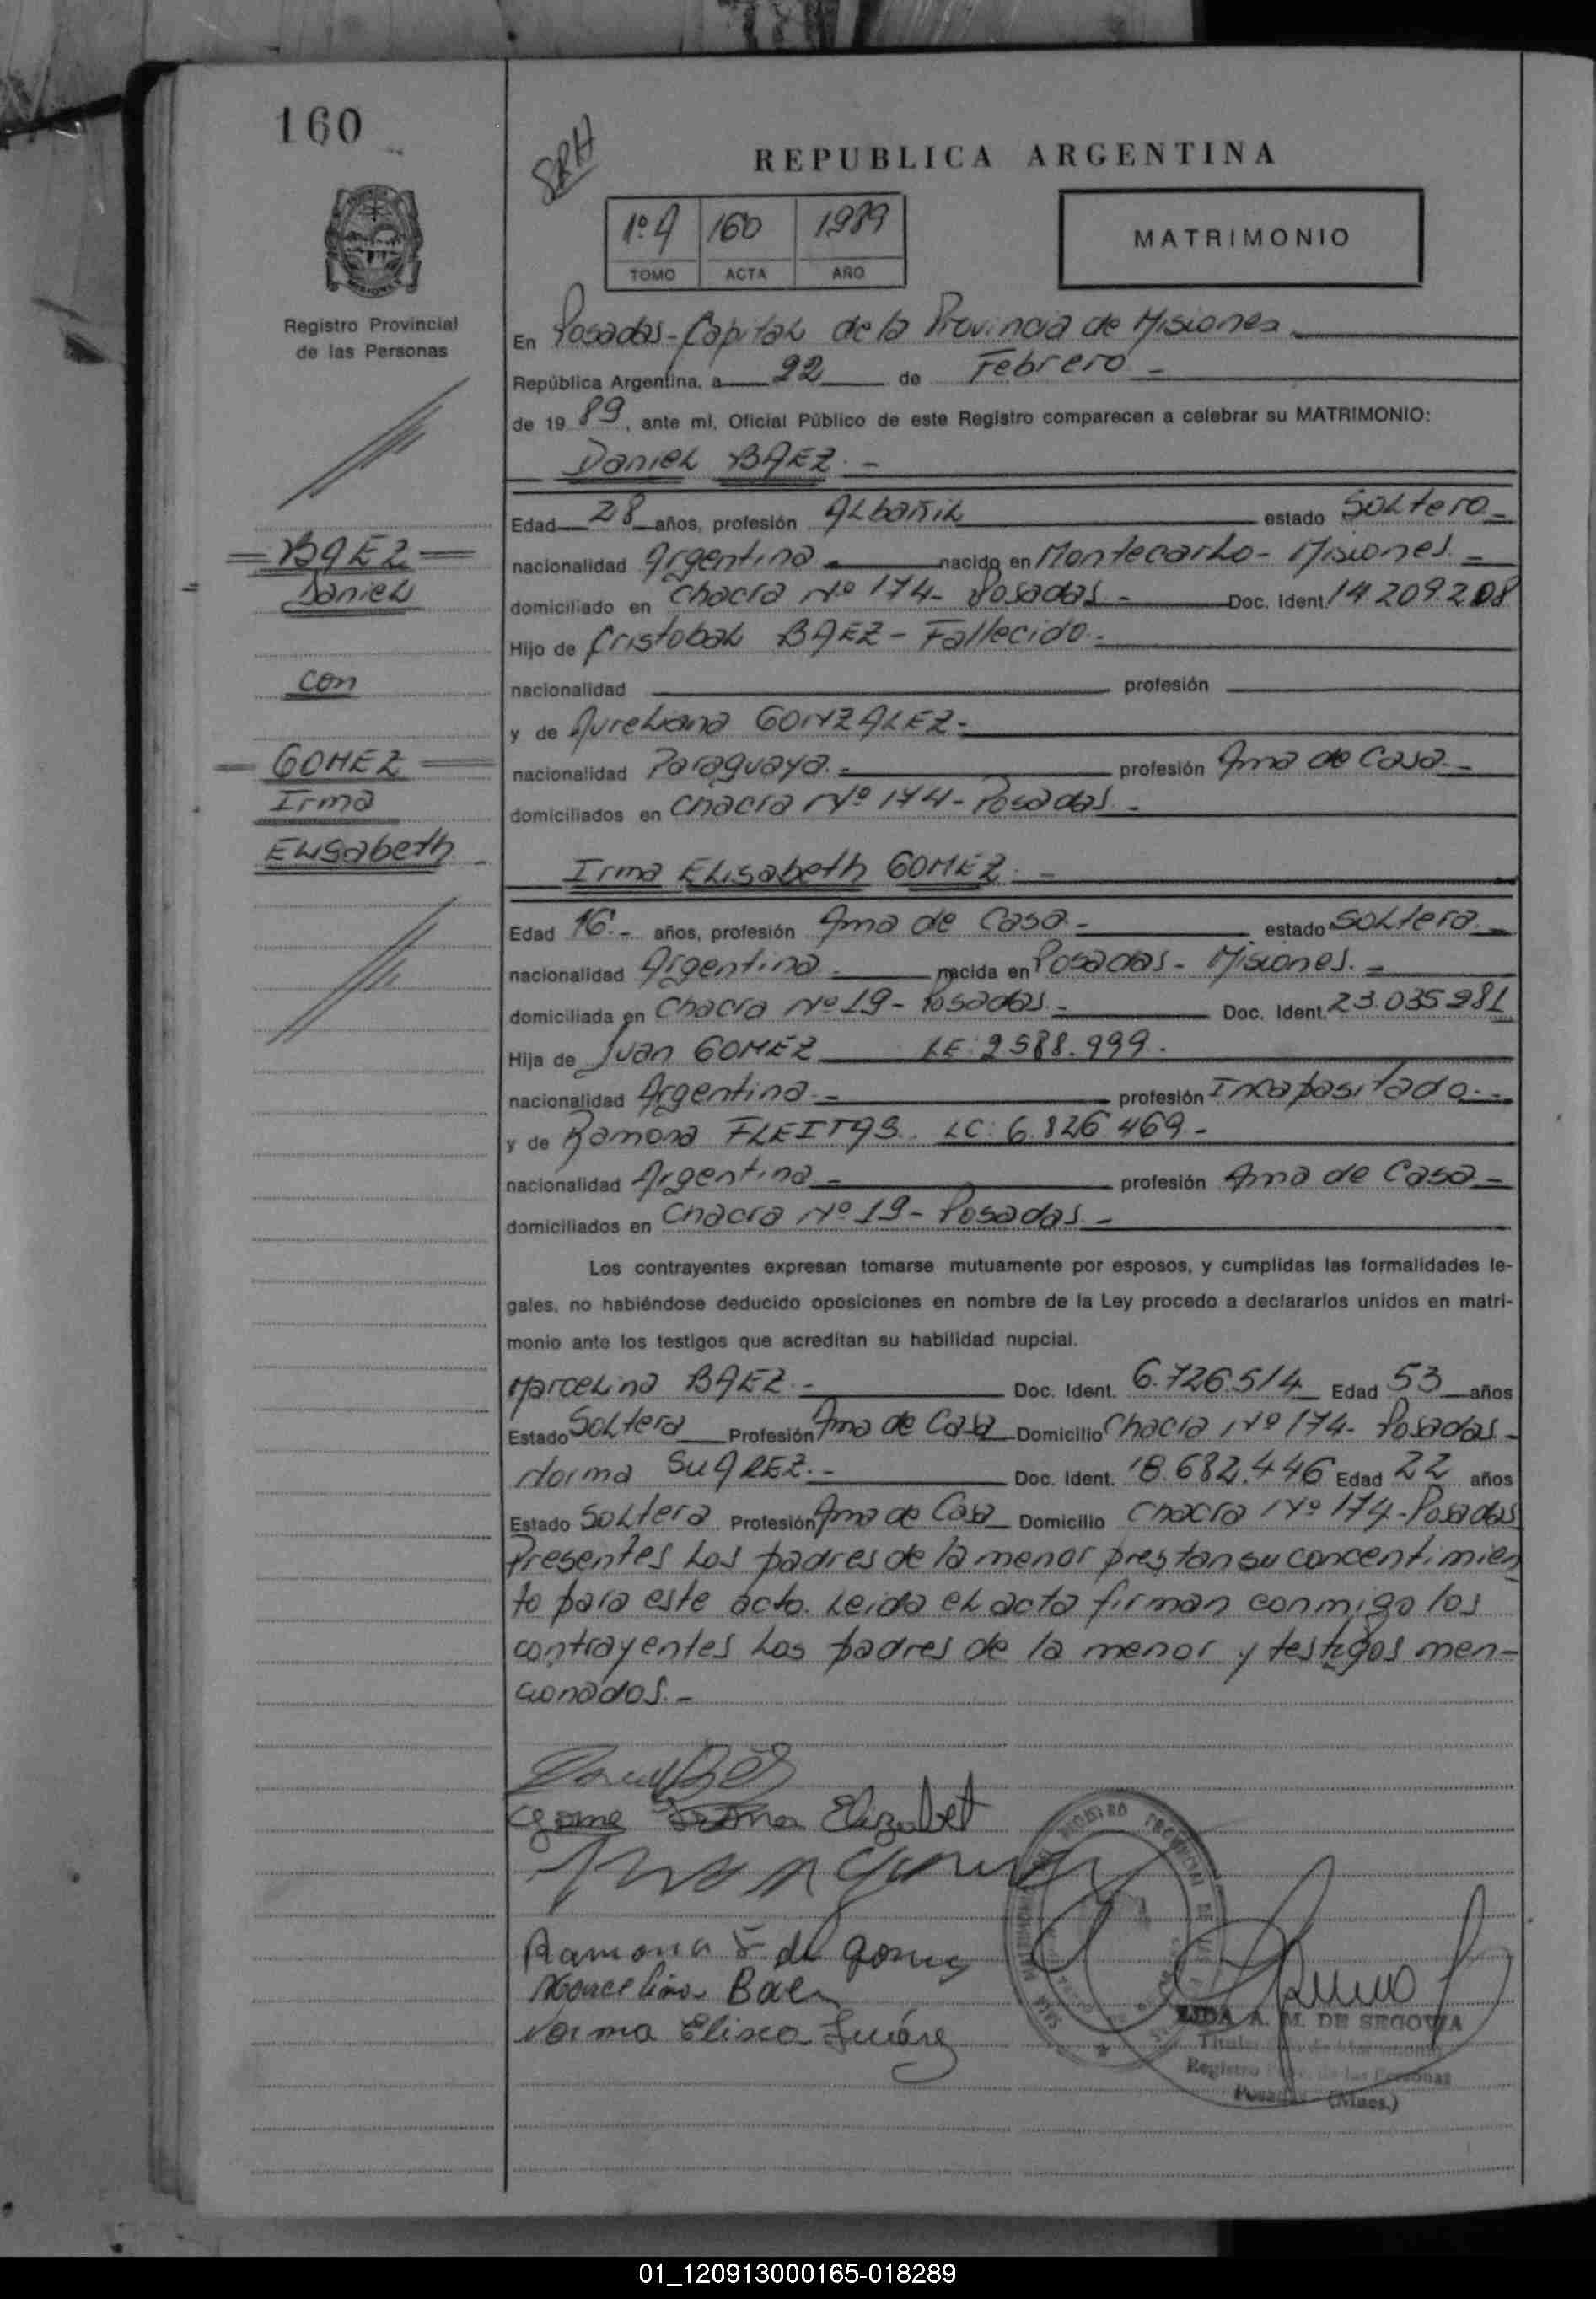 160
SRH
REPUBLICA ARGENTINA
1º A 160 1989
TOMO ACTA AÑO
MATRIMONIO
MISIONES
Registro Provincial
de las Personas
En Posadas-Capital de la Provincia de Misiones
República Argentina, a 22 de Febrero -
de 19 89, ante mi, Oficial Público de este Registro comparecen a celebrar su MATRIMONIO:
Daniel BAEZ. -
Edad 28 años, profesión Albañil estado Soltero -
nacionalidad Argentina - nacido en Montecarlo - Misiones. -
domiciliado en Chacra Nº 174 - Posadas - Doc. Ident. 14.209.208
Hijo de Cristobal BAEZ - Fallecido. -
nacionalidad profesión
y de Aureliana GONZALEZ. -
nacionalidad Paraguaya. - profesión Ama de Casa. -
domiciliados en Chacra Nº 174 - Posadas. -
BAEZ
Daniel
con
GOMEZ
Irma
Elisabeth -
Irma Elisabeth GOMEZ. -
Edad 16. - años, profesión Ama de Casa. - estado Soltera. -
nacionalidad Argentina. - nacida en Posadas - Misiones. -
domiciliada en Chacra Nº 19 - Posadas. - Doc. Ident. 23.035.981
Hija de Juan GOMEZ LE: 2588.999.
nacionalidad Argentina. - profesión Incapasitado. -
y de Ramona FLEITAS. LC: 6.826.469. -
nacionalidad Argentina. - profesión Ama de Casa -
domiciliados en Chacra Nº 19 - Posadas. -
Los contrayentes expresan tomarse mutuamente por esposos, y cumplidas las formalidades le-
gales, no habiéndose deducido oposiciones en nombre de la Ley procedo a declararlos unidos en matri-
monio ante los testigos que acreditan su habilidad nupcial.
Marcelina BAEZ. - Doc. Ident. 6.726.514 Edad 53 años
Estado Soltera Profesión Ama de Casa Domicilio Chacra Nº 174 - Posadas -
Norma SUAREZ. - Doc. Ident. 18.682.446 Edad 22 años
Estado Soltera Profesión Ama de Casa Domicilio Chacra Nº 174 - Posadas
Presentes los padres de la menor prestan su concentimien
to para este acto. Leida el acta firman conmigo los
contrayentes los padres de la menor y testigos men-
cionados. -
Gome Irma Elizabet
Juan Gomez
Ramona F de Gomez
Marcelina Baez
Norma Elisea Suárez
REGISTRO PROVINCIAL DE LAS
LIDA A. M. DE SEGOVIA
Registro Prov. de las Personas
Posadas (Mnes.)
01_120913000165-018289